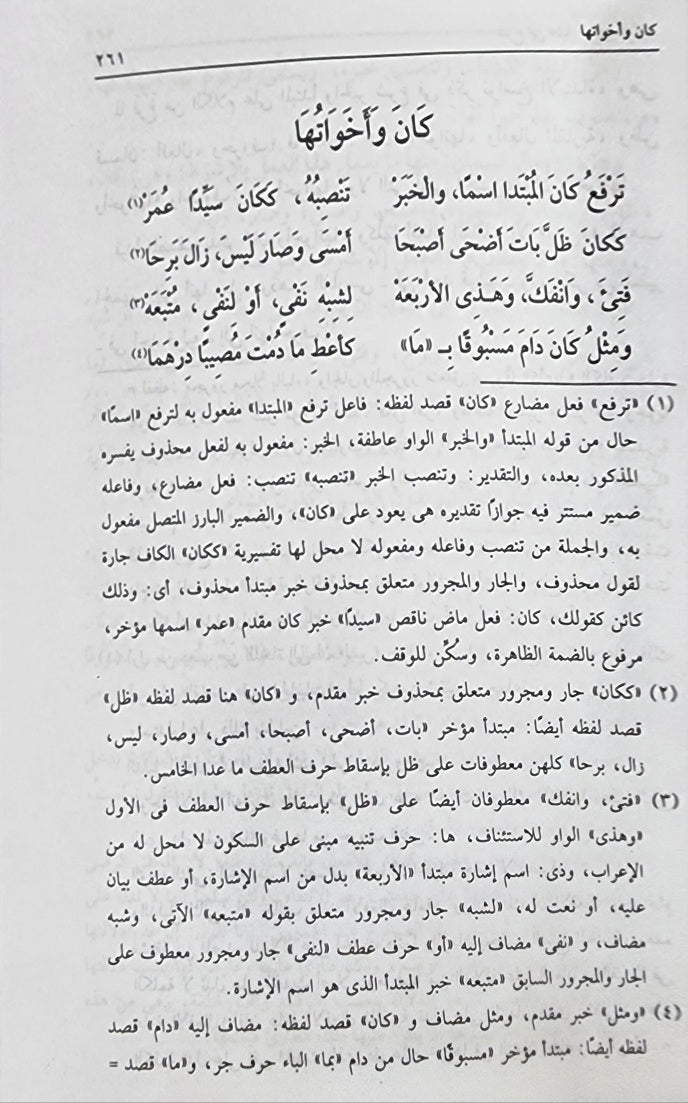 كان وأخواتها
٢٦١
كَانَ وَأَخَوَاتُهَا
تَرْفَعُ كَانَ المُبْتَدا اسْمًا، والْخَبَرْ تَنْصِبُهُ، كَكَانَ سَيِّدًا عُمَرْ(١)
كَكانَ ظَلَّ بَاتَ أَضْحَى أَصْبَحَا أَمْسَى وَصَارَ لَيْسَ، زَالَ بَرِحَا(٢)
فَتِئَ، وَانْفَكَّ، وَهَذِى الأرْبَعَهْ لِشِبْهِ نَفْىٍ، أَوْ لنَفْىٍ، مُتْبَعَهْ(٣)
وَمِثْلُ كَانَ دَامَ مَسْبُوقًا بِـ «مَا» كَأَعْطِ مَا دُمْتَ مُصِيبًا دِرْهَمَا(٤)
(١) «ترفع» فعل مضارع «كان» قصد لفظه: فاعل ترفع «المبتدا» مفعول به لترفع «اسمًا»
حال من قوله المبتدأ «والخبر» الواو عاطفة، الخبر: مفعول به لفعل محذوف يفسره
المذكور بعده، والتقدير: وتنصب الخبر «تنصبه» تنصب: فعل مضارع، وفاعله
ضمير مستتر فيه جوازًا تقديره هى يعود على «كان»، والضمير البارز المتصل مفعول
به، والجملة من تنصب وفاعله ومفعوله لا محل لها تفسيرية «ككان» الكاف جارة
لقول محذوف، والجار والمجرور متعلق بمحذوف خبر مبتدأ محذوف، أى: وذلك
كائن كقولك، كان: فعل ماض ناقص «سيدًا» خبر كان مقدم «عمر» اسمها مؤخر،
مرفوع بالضمة الظاهرة، وسُكِّن للوقف.
(٢) «ككان» جار ومجرور متعلق بمحذوف خبر مقدم، و «كان» هنا قصد لفظه «ظل»
قصد لفظه أيضًا: مبتدأ مؤخر «بات، أضحى، أصبحا، أمسى، وصار، ليس،
زال، برحا» كلهن معطوفات على ظل بإسقاط حرف العطف ما عدا الخامس.
(٣) «فتئ، وانفك» معطوفان أيضًا على «ظل» بإسقاط حرف العطف فى الأول
«وهذى» الواو للاستئناف، ها: حرف تنبيه مبنى على السكون لا محل له من
الإعراب، وذى: اسم إشارة مبتدأ «الأربعة» بدل من اسم الإشارة، أو عطف بيان
عليه، أو نعت له، «لشبه» جار ومجرور متعلق بقوله «متبعه» الآتى، وشبه
مضاف، و «نفى» مضاف إليه «أو» حرف عطف «لنفى» جار ومجرور معطوف على
الجار والمجرور السابق «متبعه» خبر المبتدأ الذى هو اسم الإشارة.
(٤) «ومثل» خبر مقدم، ومثل مضاف و «كان» قصد لفظه: مضاف إليه «دام» قصد
لفظه أيضًا: مبتدأ مؤخر «مسبوقًا» حال من دام «بما» الباء حرف جر، و«ما» قصد =